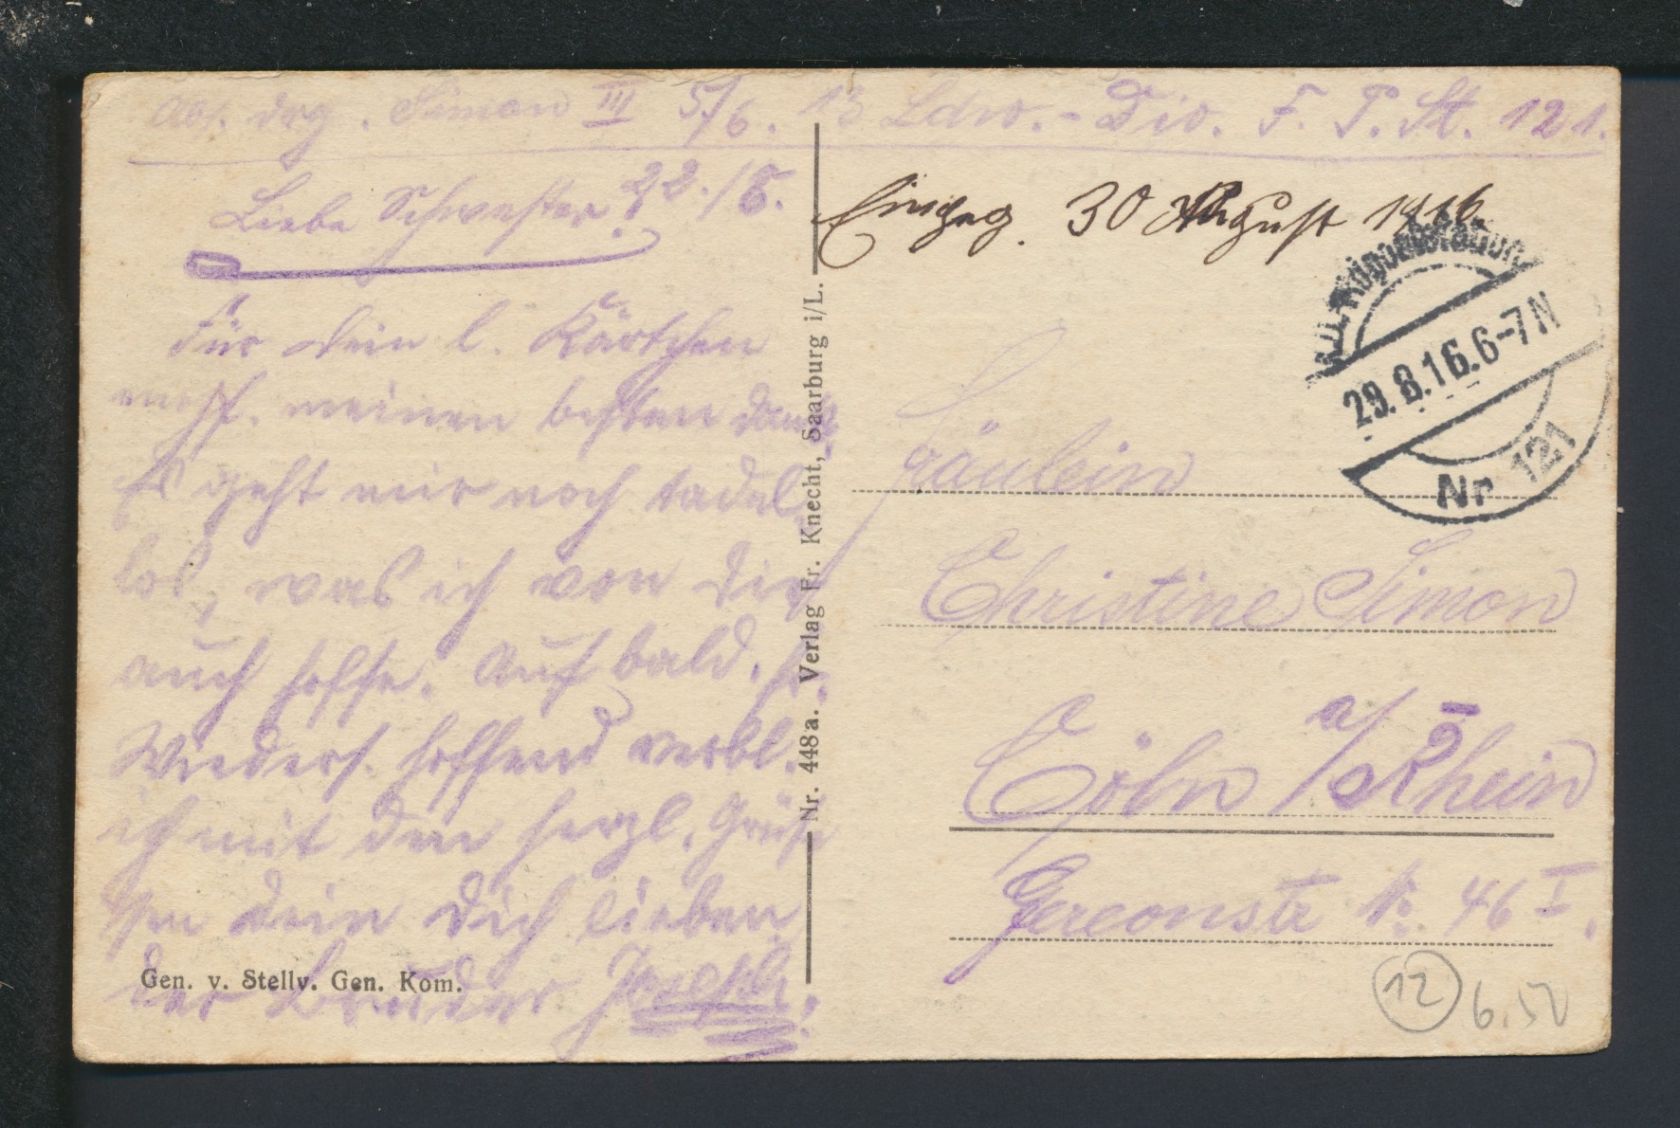 Abs. Drg. Simon III 5/6. 13 Ldw.-Div. F. P. St. 121.
Liebe Schwester! 22./8.
Für Dein l. Kärtchen
meinen besten Dank.
Es geht mir noch tadel-
los, was ich von Dir
auch hoffe. Auf bald. fr.
Wieders. hoffend verbl.
ich mit den herzl. Grüß-
sen Dein Dich lieben
der Bruder Joseph.
Gen. v. Stellv. Gen. Kom.
Nr. 448a. Verlag Fr. Knecht, Saarburg i/L.
Eingeg. 30 August 1916
29.8.16.6-7N
Nr 121
Fräulein
Christine Simon
Cöln a/Rhein
Gereonstr No. 46 I.
12 6.50